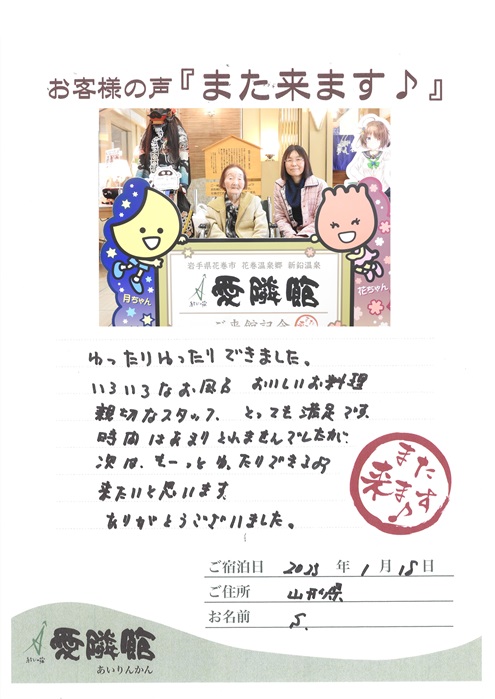 お客様の声『また来ます♪』
岩手県花巻市 花巻温泉郷 新鉛温泉
愛隣館
ご来館記念
月ちゃん
花ちゃん
ゆったりゆったりできました。
いろいろなお風呂 おいしいお料理
親切なスタッフ、とっても満足です。
時間はあまりとれませんでしたが、
次は、もーっとゆったりできる
来たいと思います
ありがとうございました。
また
来ます♪
ご宿泊日 2023 年 1 月 18 日
ご住所 山形県
お名前 S.
愛隣館
あいりんかん